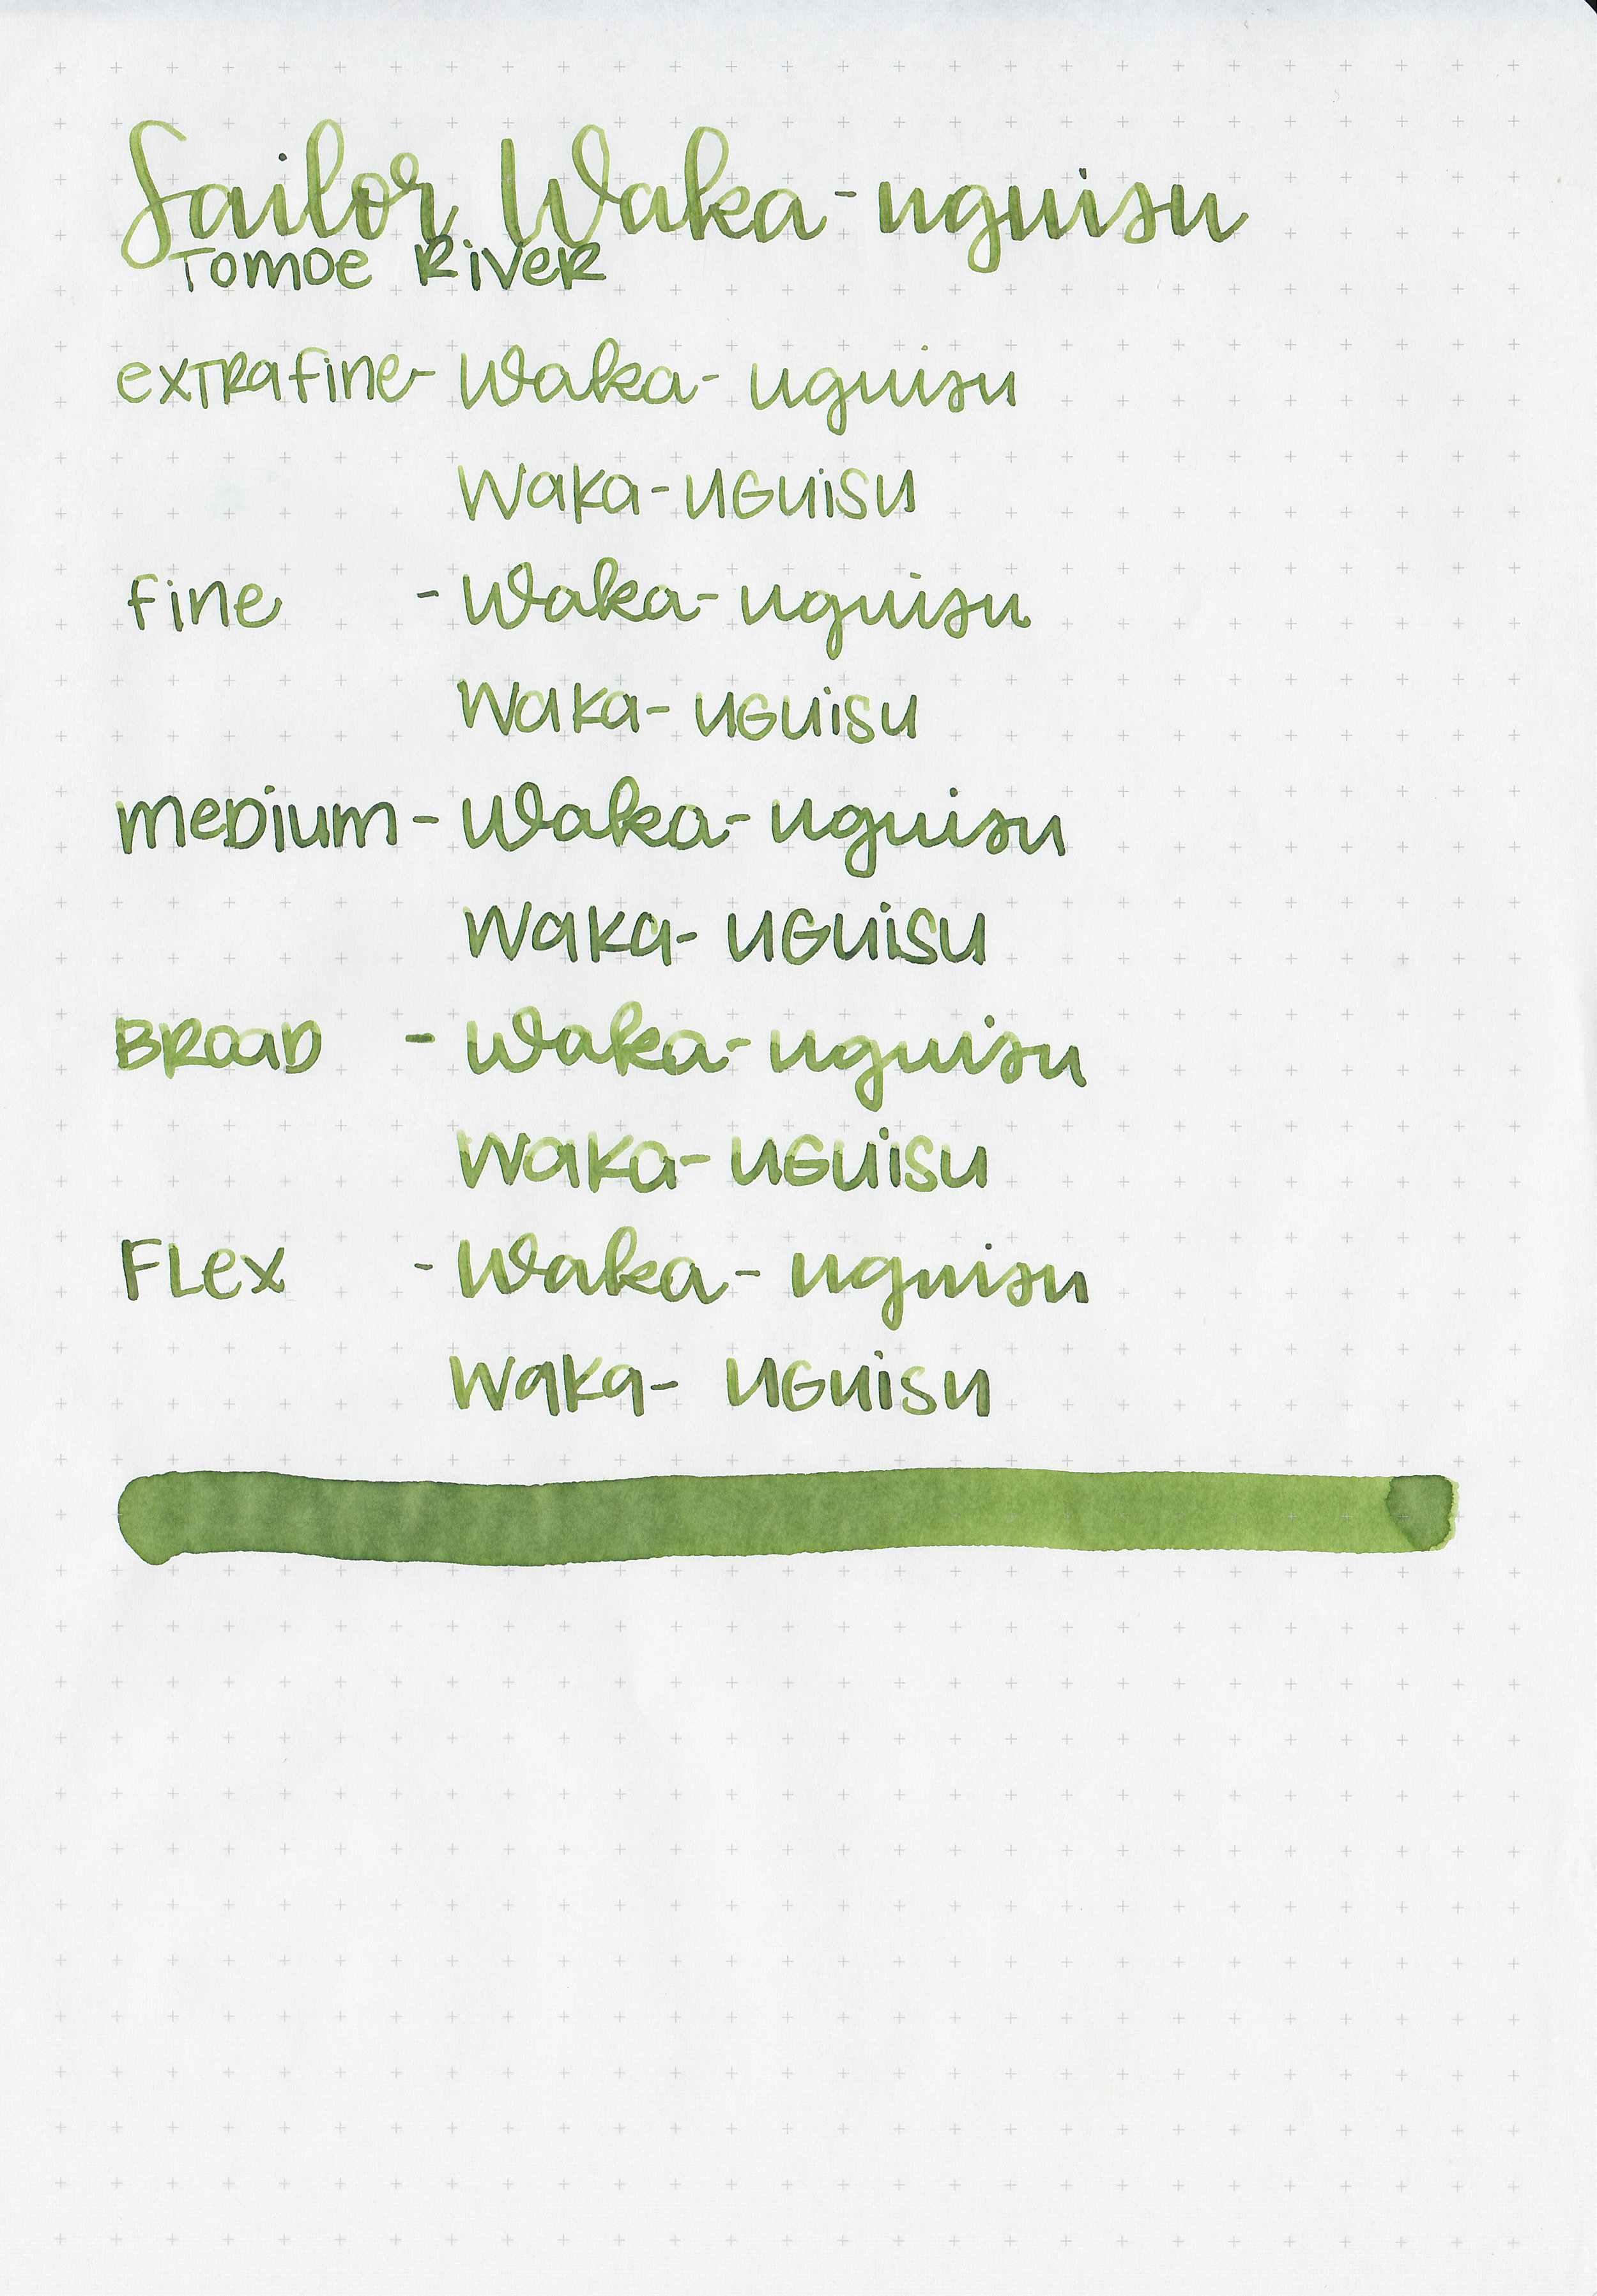 Sailor Waka-uguisu
Tomoe River
extra fine - Waka-uguisu
Waka-uguisu
fine - Waka-uguisu
Waka-uguisu
medium - Waka-uguisu
Waka-uguisu
Broad - Waka-uguisu
Waka-uguisu
Flex - Waka-uguisu
Waka-uguisu